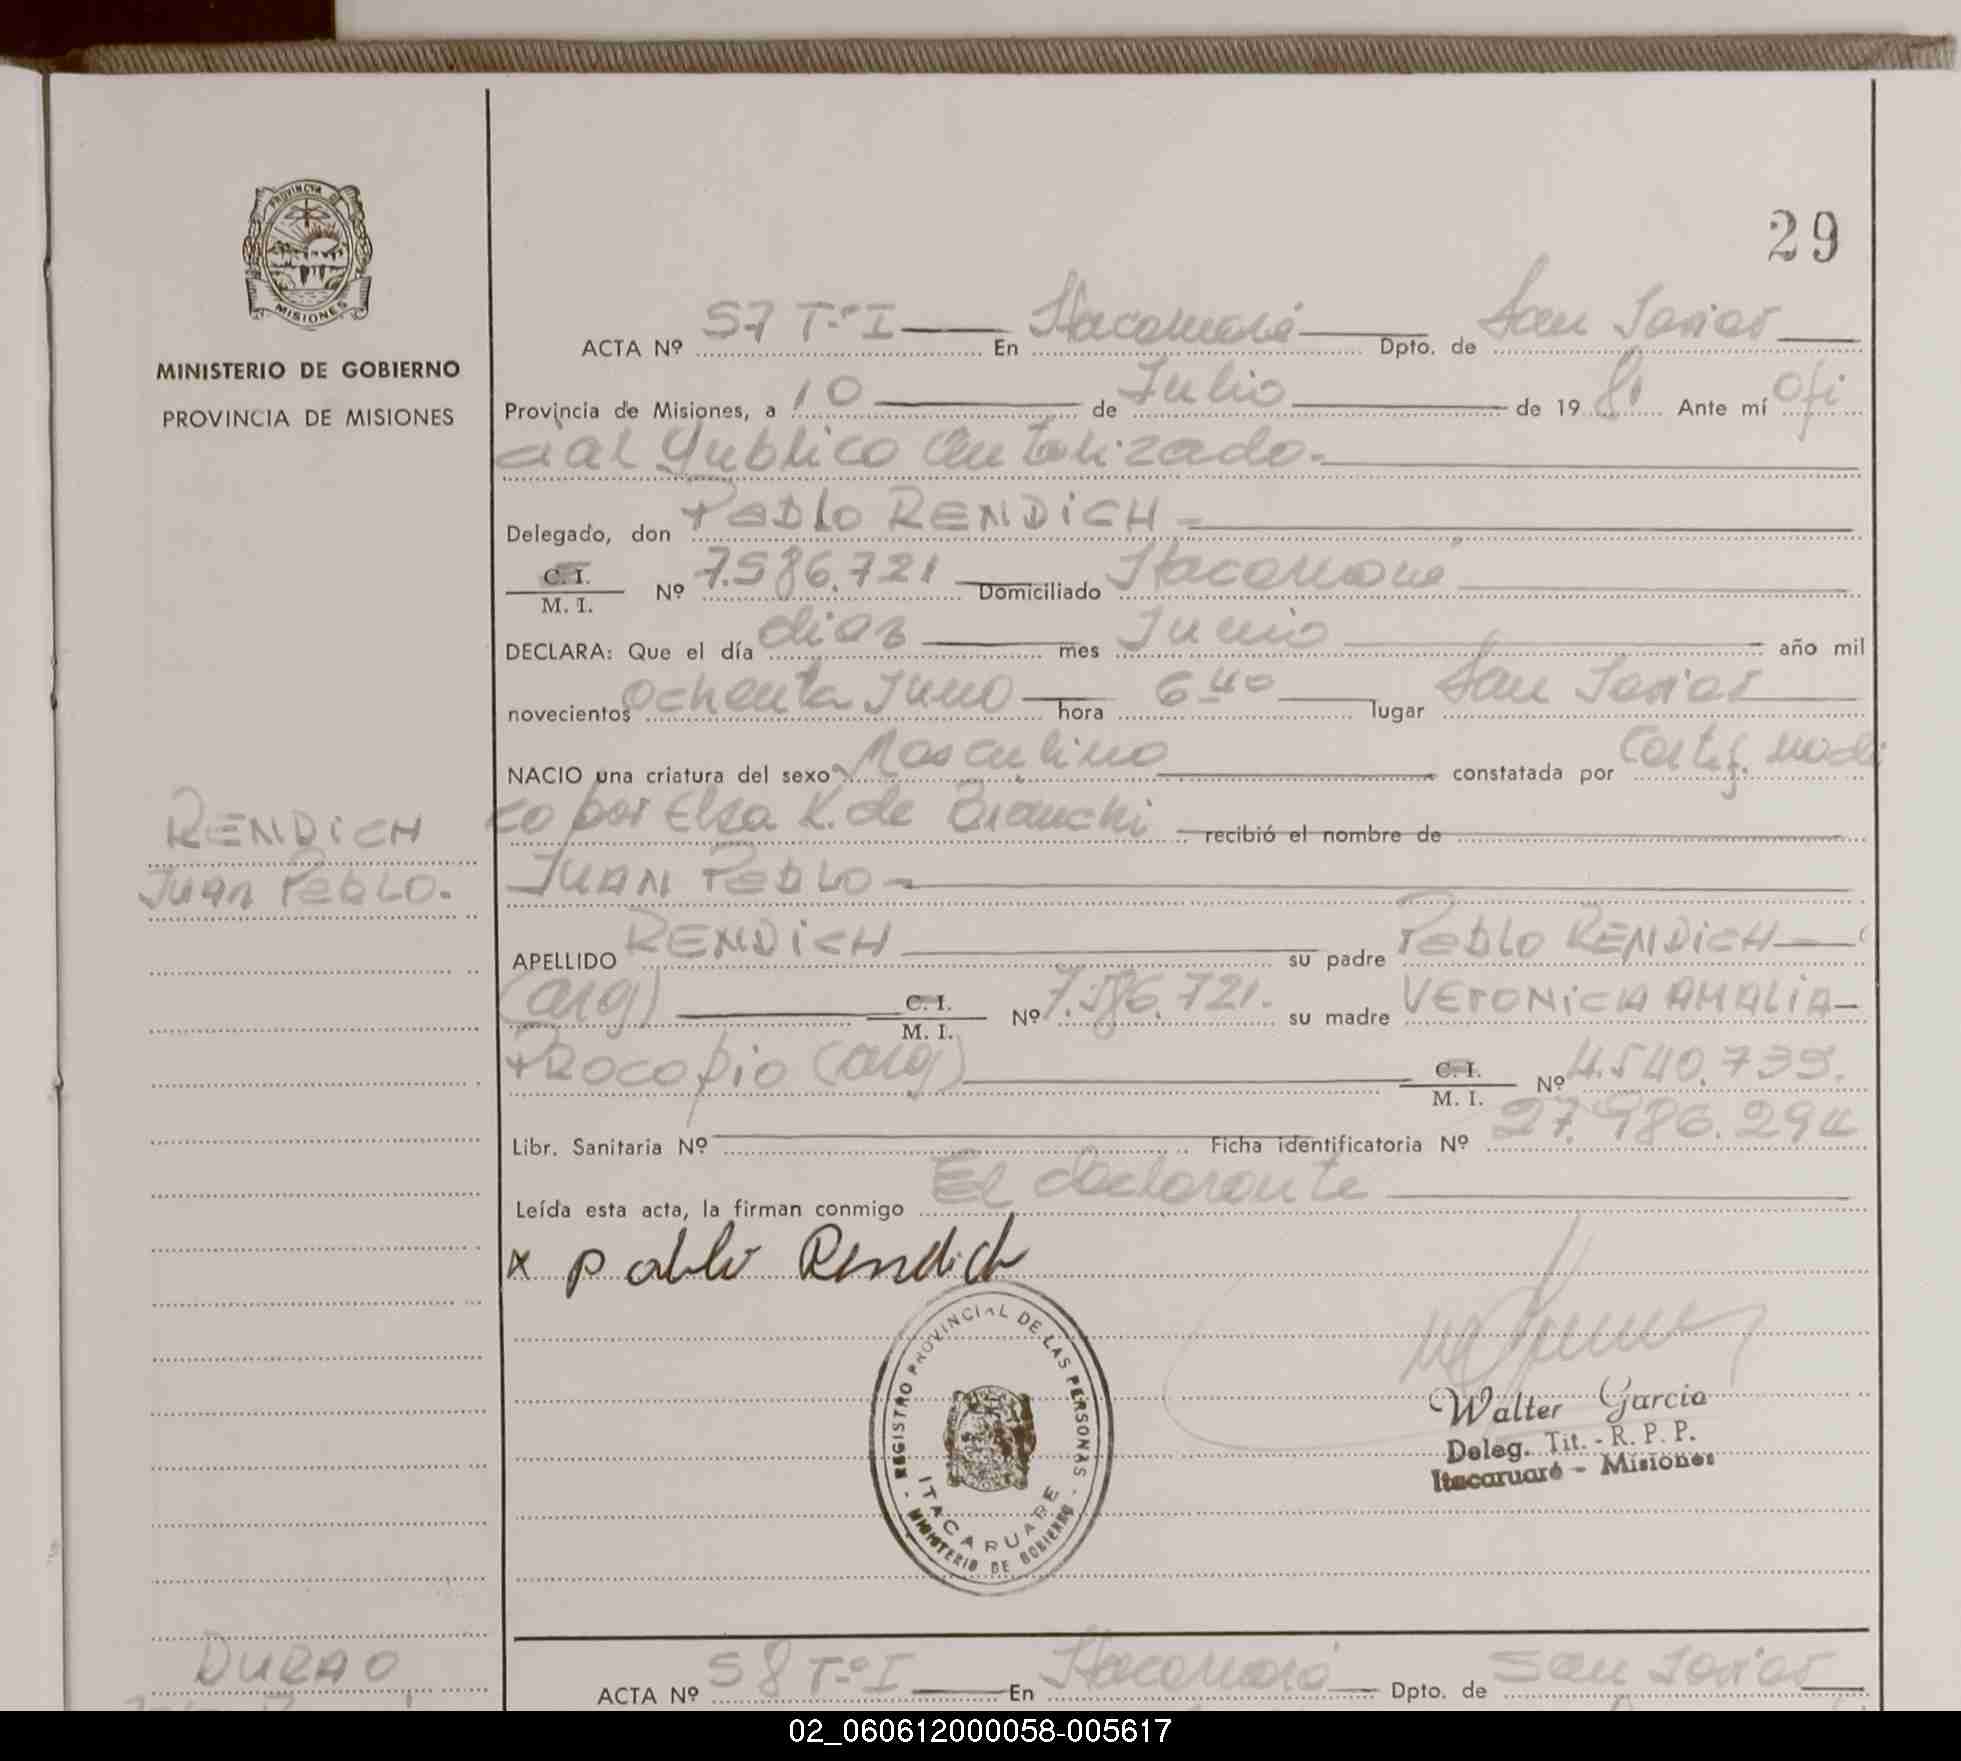 PROVINCIA DE
MISIONES
MINISTERIO DE GOBIERNO
PROVINCIA DE MISIONES
29
ACTA Nº 57 Tº I En Itacaruaré Dpto. de San Javier
Provincia de Misiones, a 10 de Julio de 19 81 Ante mí ofi
cial Público Autorizado.
Delegado, don Pablo RENDICH
C. I. M. I. Nº 7.586.721 Domiciliado Itacaruaré
DECLARA: Que el día diez mes Junio año mil
novecientos ochenta y uno hora 6 40 lugar San Javier
NACIO una criatura del sexo Masculino constatada por Certif. medi
co por Elsa K. de Bianchi recibió el nombre de
JUAN PABLO
RENDICH
Juan PABLO.
APELLIDO RENDICH su padre Pablo RENDICH
(arg) C. I. M. I. Nº 7.586.721. su madre VERONICA AMALIA
PROCOPIO (arg) C. I. M. I. Nº 4.540.739.
Libr. Sanitaria Nº Ficha identificatoria Nº 27.986.294
Leída esta acta, la firman conmigo El declarante
x pablo Rendich
REGISTRO PROVINCIAL DE LAS PERSONAS
ITACARUARE
- MINISTERIO DE GOBIERNO -
Walter Garcia
Deleg. Tit. - R. P. P.
Itacaruaré - Misiones
DURAO
ACTA Nº 58 Tº I En Itacaruaré Dpto. de San Javier
02_060612000058-005617